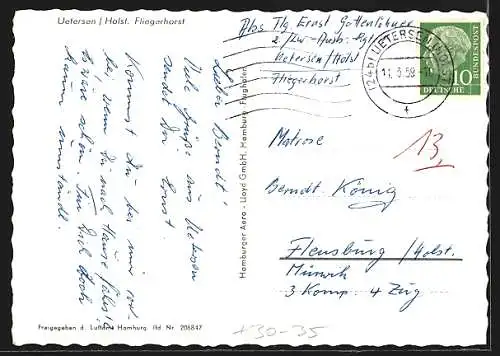 Uetersen / Holst. Fliegerhorst
Abs. Flg Ernst
Uetersen/Holst
Fliegerhorst
(24b) UETERSEN (HOLST)
11.3.58
10
DEUTSCHE
BUNDESPOST
Lieber Berndt!
Viele Grüße aus Uetersen
sendet Dir Ernst.
Kommst Du bei mir vor-
bei, wenn Du nach Hause fährst?
Es wäre schön. Für Dich doch
kaum umständl.
Hamburger Aero - Lloyd GmbH. Hamburg Flughafen
Matrose
Berndt König
13
Flensburg/Holst.
Mürwik
3 Komp. 4 Zug
Freigegeben d. Luftamt Hamburg. lfd. Nr. 206847
+30-35